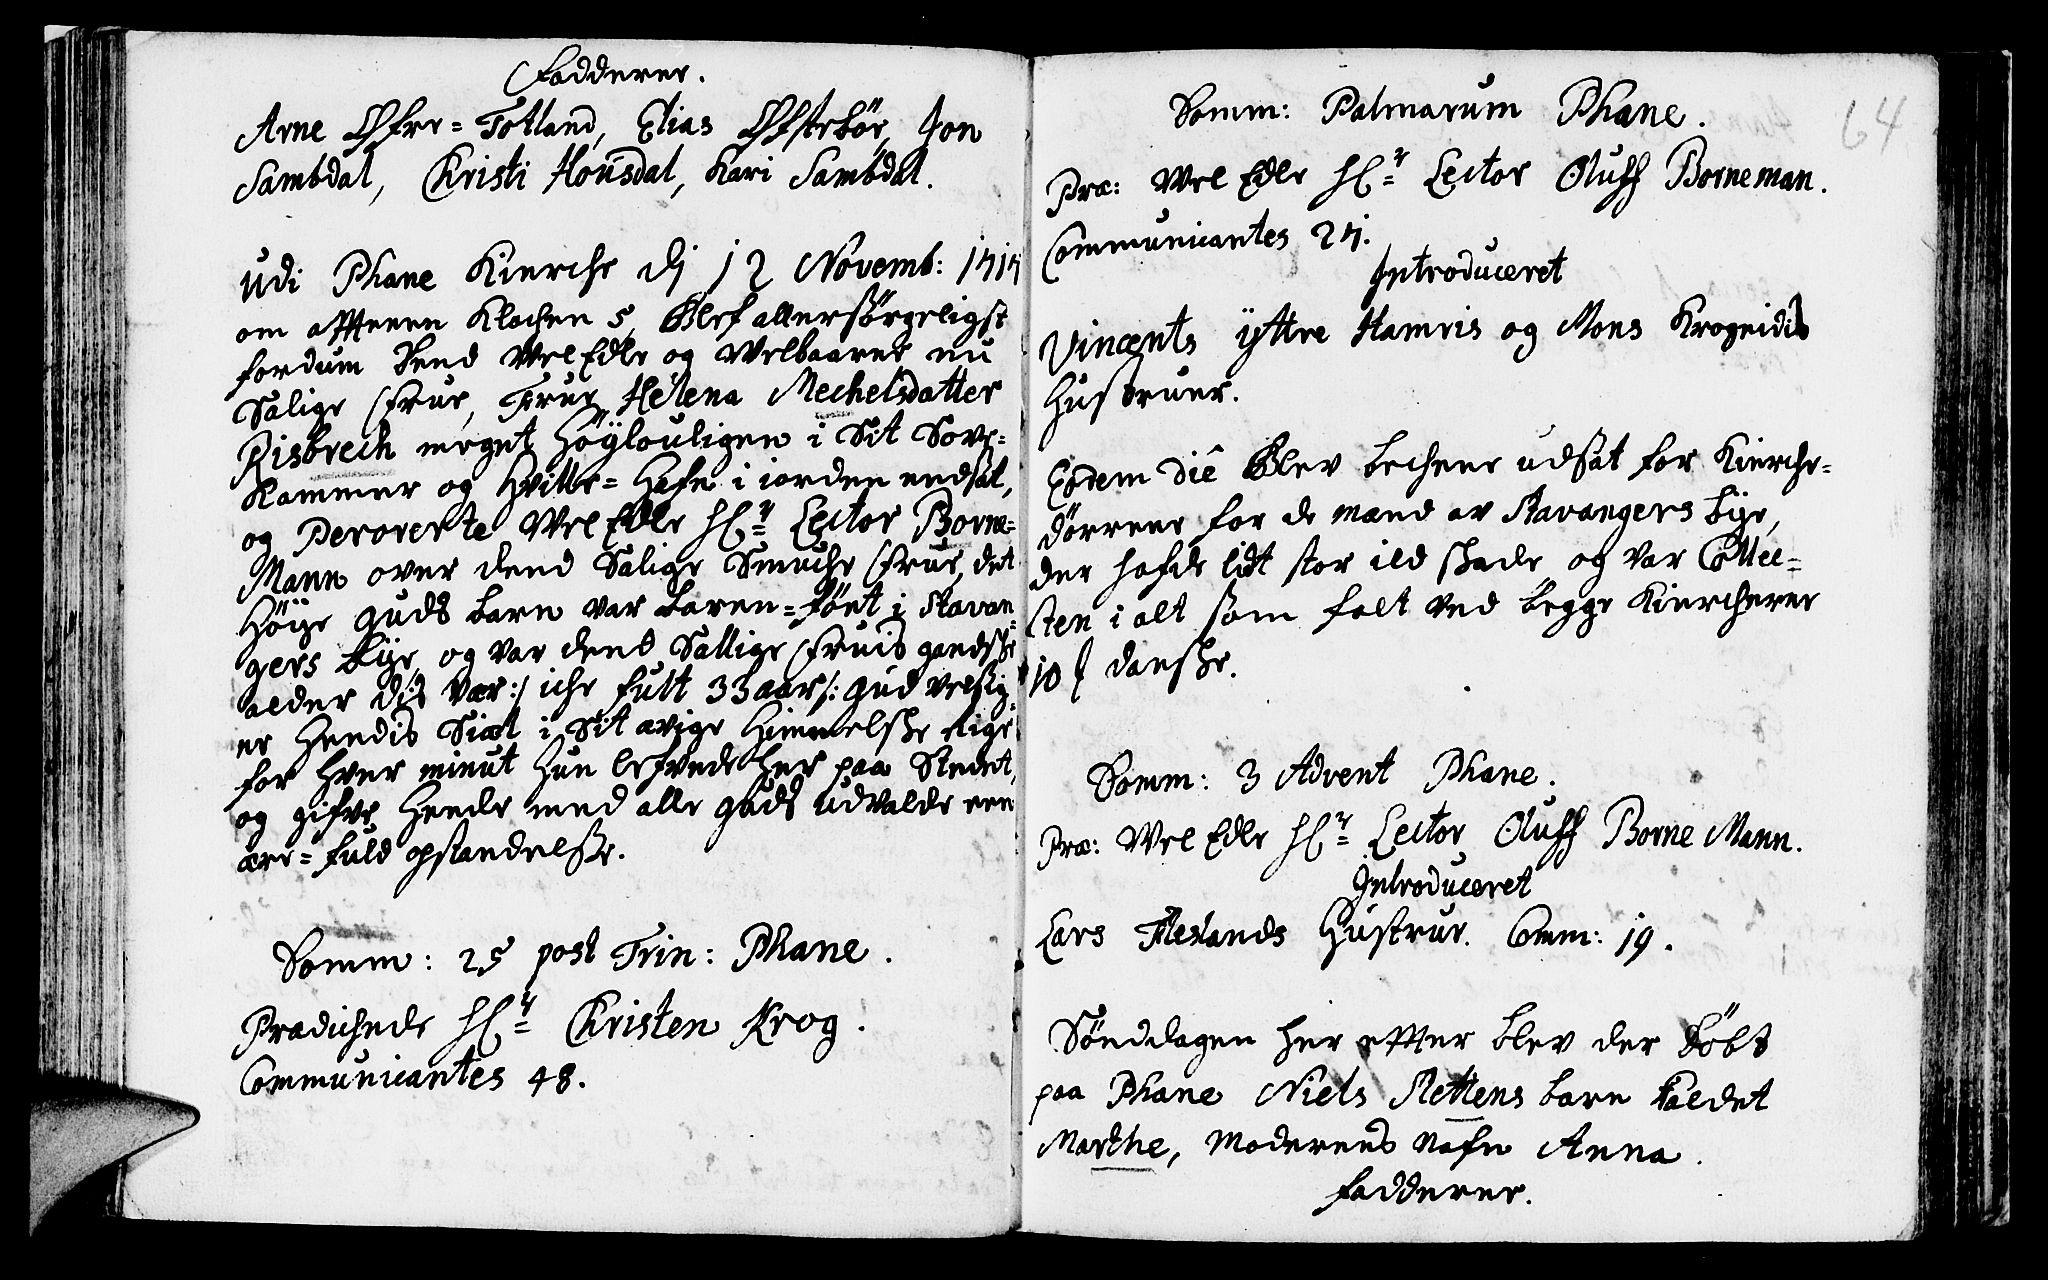 Fadderer.
Arne Øfre=Totland, Elias Øfstebör, Jon
Sambdal, Christi Housdal, Kari Sambdal.
Udi Phane Kierche dj 12 Novemb: 1717
om afftenen Klochen 5, Blef allersørgeligst
fordum Vend Wel Edle og Welbaarne nu
Salige Frue, Frue Helena Mechelsdatter
Risbrech meget Höÿlouligen i Sit Sove=
Kammer og Hville=Hafn i iorden nedsat,
og Perorerte Wel Edle Hr= Lector Borne=
Mann over dend Salige Smuche Frue, det
Höÿe Guds barn var baren=föet i Stavan=
gers Bÿe, og var dend Sallige Fruis gandske
alder dis Vær:/ iche fult 33 aar/: Gud velsig=
ner Hendis Siæl i Sit ævige Himmelske rige
for hver minut Hun lefvede her paa Stedet,
og gifve Hende med alle Guds udvalde een
ære=fuld opstandelsse.
Domm: 25 post Trin: Phane.
Prædichede Hr= Christen Krog.
Communicantes 48.
64
Domm: Palmarum Phane.
Præ: Wel Edle Hr= Lector Oluff Borneman.
Communicantes 27.
Introduceret
Vincents ÿttre Hamris og Mons Krogeidis
Hustruer.
Eodem diê Blev bechene udsat for Kierche=
dørrene for de mænd av Stavangers bÿe,
der hafde lidt stor ild skade og var Collec=
ten i alt som falt ved begge Kiercherne
10 ẞ danske.
Domm: 3 Advent Phane.
Præ: Wel Edle Hr= Lector Oluff Borne Mann.
Introduceret
Lars Fleslands Hustrue. Comm: 19.
Sönddagen her effter blev der döbt
paa Phane Niels Slettens barn kaldet
Marthe, Moderens nafn Anna.
Fadderer.